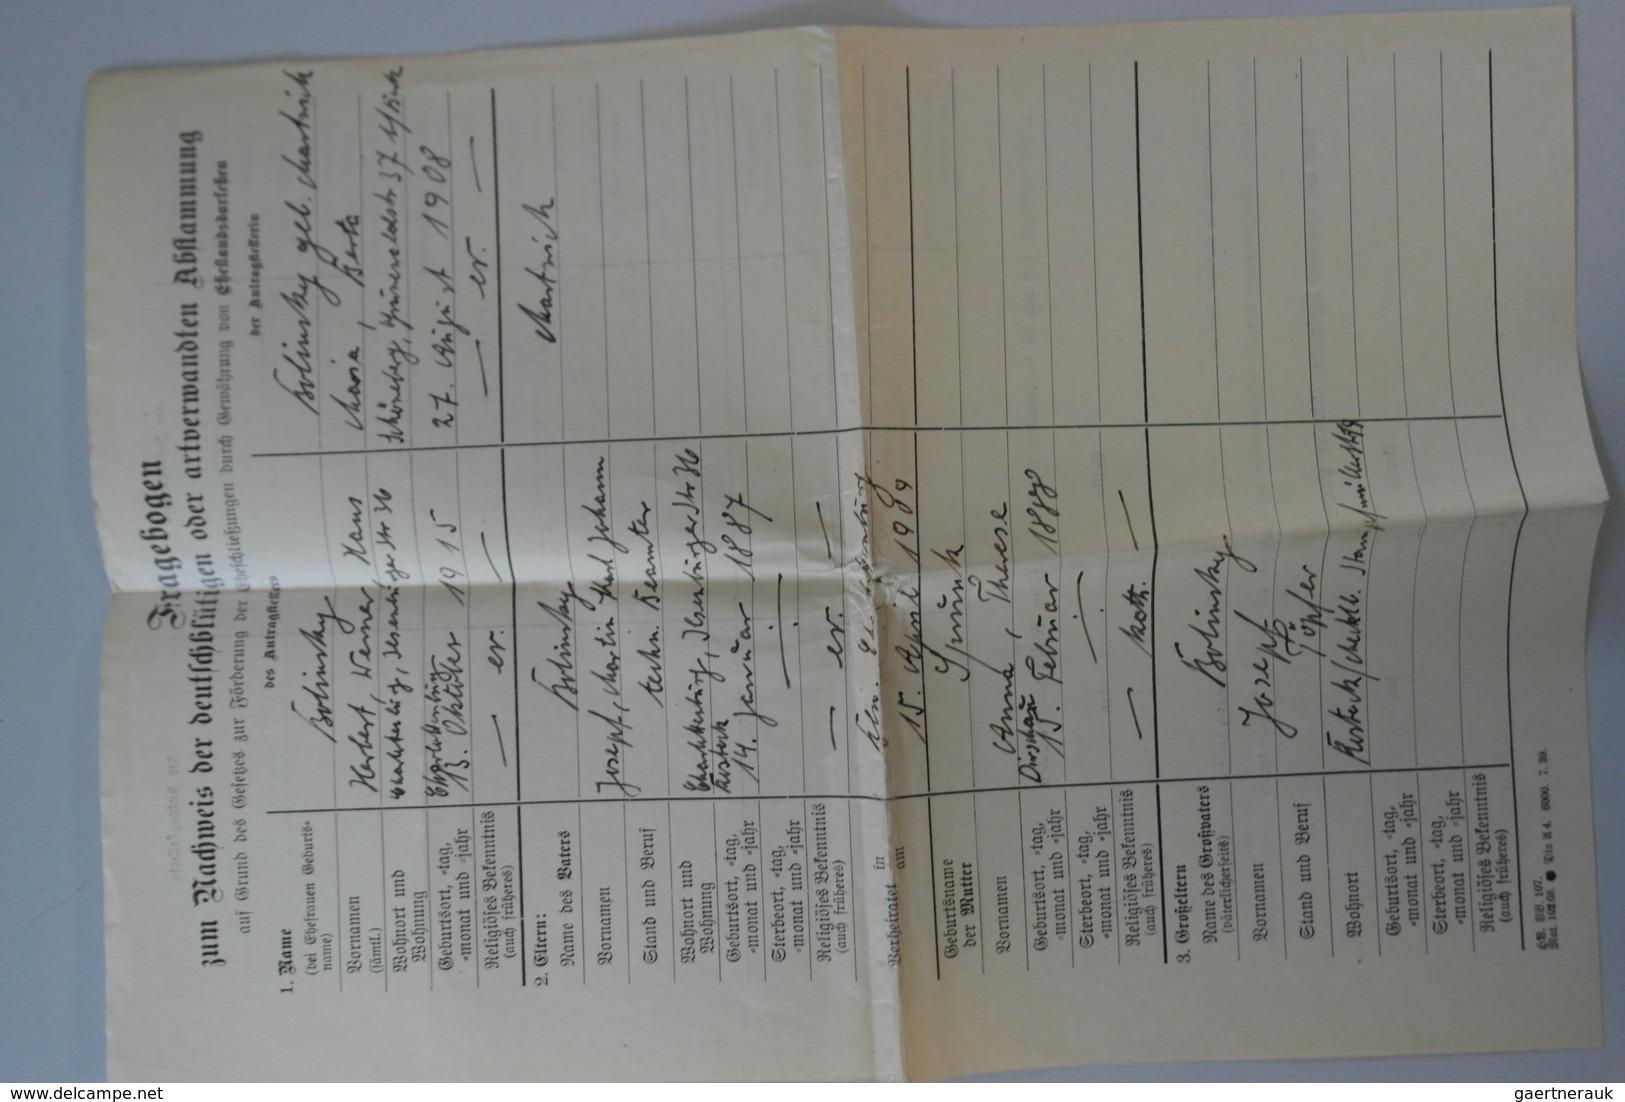 Fragebogen
zum Nachweis der deutschblütigen oder artverwandten Abstammung
auf Grund des Gesetzes zur Förderung der Eheschließungen durch Gewährung von Ehestandsdarlehen
des Antragstellers
der Antragstellerin
1. Name
(bei Ehefrauen Geburts-
name)
Bolinsky
Bolinsky geb. Martnick
Vornamen
(sämtl.)
Herbert, Werner, Hans
Maria, Berta
Wohnort und
Wohnung
Charlottenburg, Ilsenburgerstr 36
Schöneberg, Grunewaldstr 37
Geburtsort, -tag,
-monat und -jahr
Charlottenburg
13. Oktober 1915
27. August 1908
Religiöses Bekenntnis
(auch früheres)
— ev. —
— ev. —
2. Eltern:
Name des Vaters
Bolinsky
Martnick
Vornamen
Joseph, Martin Karl Johann
Stand und Beruf
techn. Beamter
Wohnort und
Wohnung
Charlottenburg, Ilsenburgerstr 36
Geburtsort, -tag,
-monat und -jahr
Rostock
14. Januar 1887
Sterbeort, -tag,
-monat und -jahr
Religiöses Bekenntnis
(auch früheres)
— ev. —
Verheiratet in
am
15. April 1909
Geburtsname
der Mutter
Vornamen
Anna, Therese
Geburtsort, -tag,
-monat und -jahr
Dirschau
15. Februar 1888
Sterbeort, -tag,
-monat und -jahr
Religiöses Bekenntnis
(auch früheres)
— kath. —
3. Großeltern
Name des Großvaters
(väterlicherseits)
Bolinsky
Vornamen
Josepf
Stand und Beruf
Töpfer
Wohnort
Rostock/Meckl.
Geburtsort, -tag,
-monat und -jahr
Sterbeort, -tag,
-monat und -jahr
Religiöses Bekenntnis
(auch früheres)
Din A 4. 6000. 7. 39.
www.delcampe.net
gaertnerauk